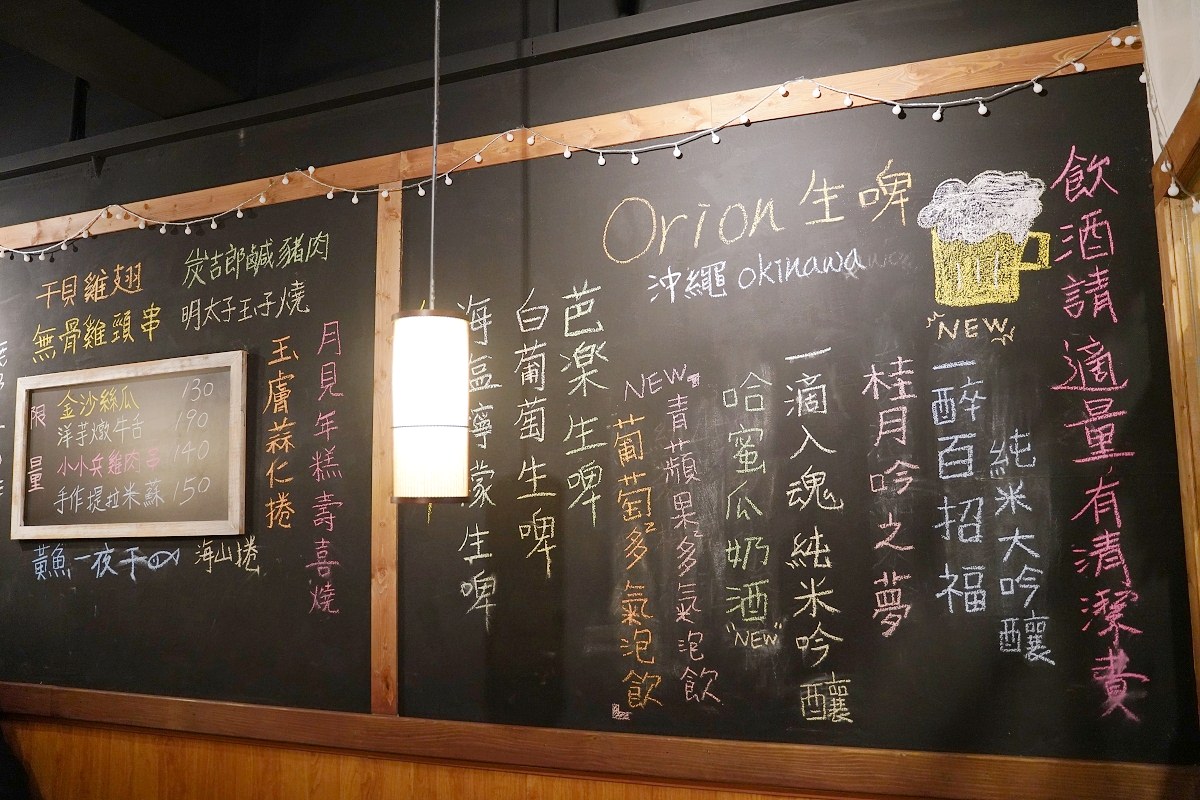 飲酒請適量,有清潔費
Orion 生啤
沖繩 okinawa
NEW
純米大吟釀
一醉百招福
桂月吟之夢
一滴入魂 純米吟釀
哈蜜瓜奶酒 "NEW"
NEW
青蘋果多多氣泡飲
葡萄多多氣泡飲
芭楽生啤
白葡萄生啤
海塩檸檬生啤
炭吉郎鹹豬肉
干貝雞翅
明太子玉子燒
無骨雞頸串
月見年糕壽喜燒
玉膚蒜仁捲
限量
金沙絲瓜 130
洋芋燉牛舌 190
小小兵雞肉串 140
手作提拉米蘇 150
黃魚一夜干
海山捲